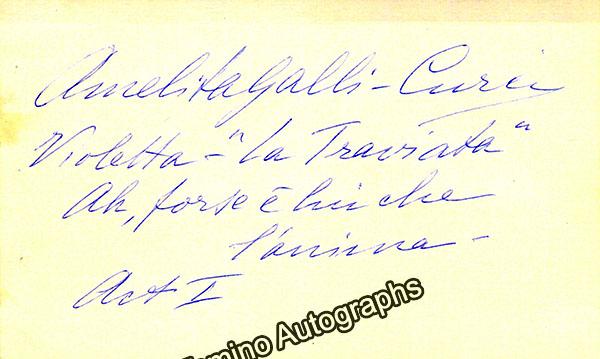 Amelita Galli-Curci
Violetta - "La Traviata"
Ah, forse è lui che
l'anima -
Act I
Tamino Autographs